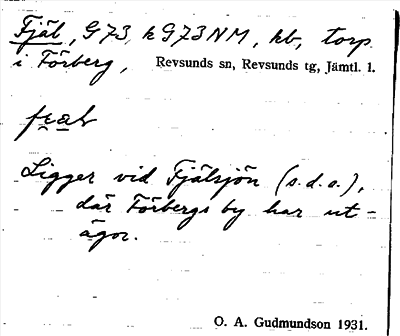 Fjäl, G73, k G73NM, hb, torp
i Förberg, Revsunds sn, Revsunds tg, Jämtl. l.
Ligger vid Fjälsjön (s.d.o.),
där Förbergs by har ut-
ägor.
O. A. Gudmundson 1931.